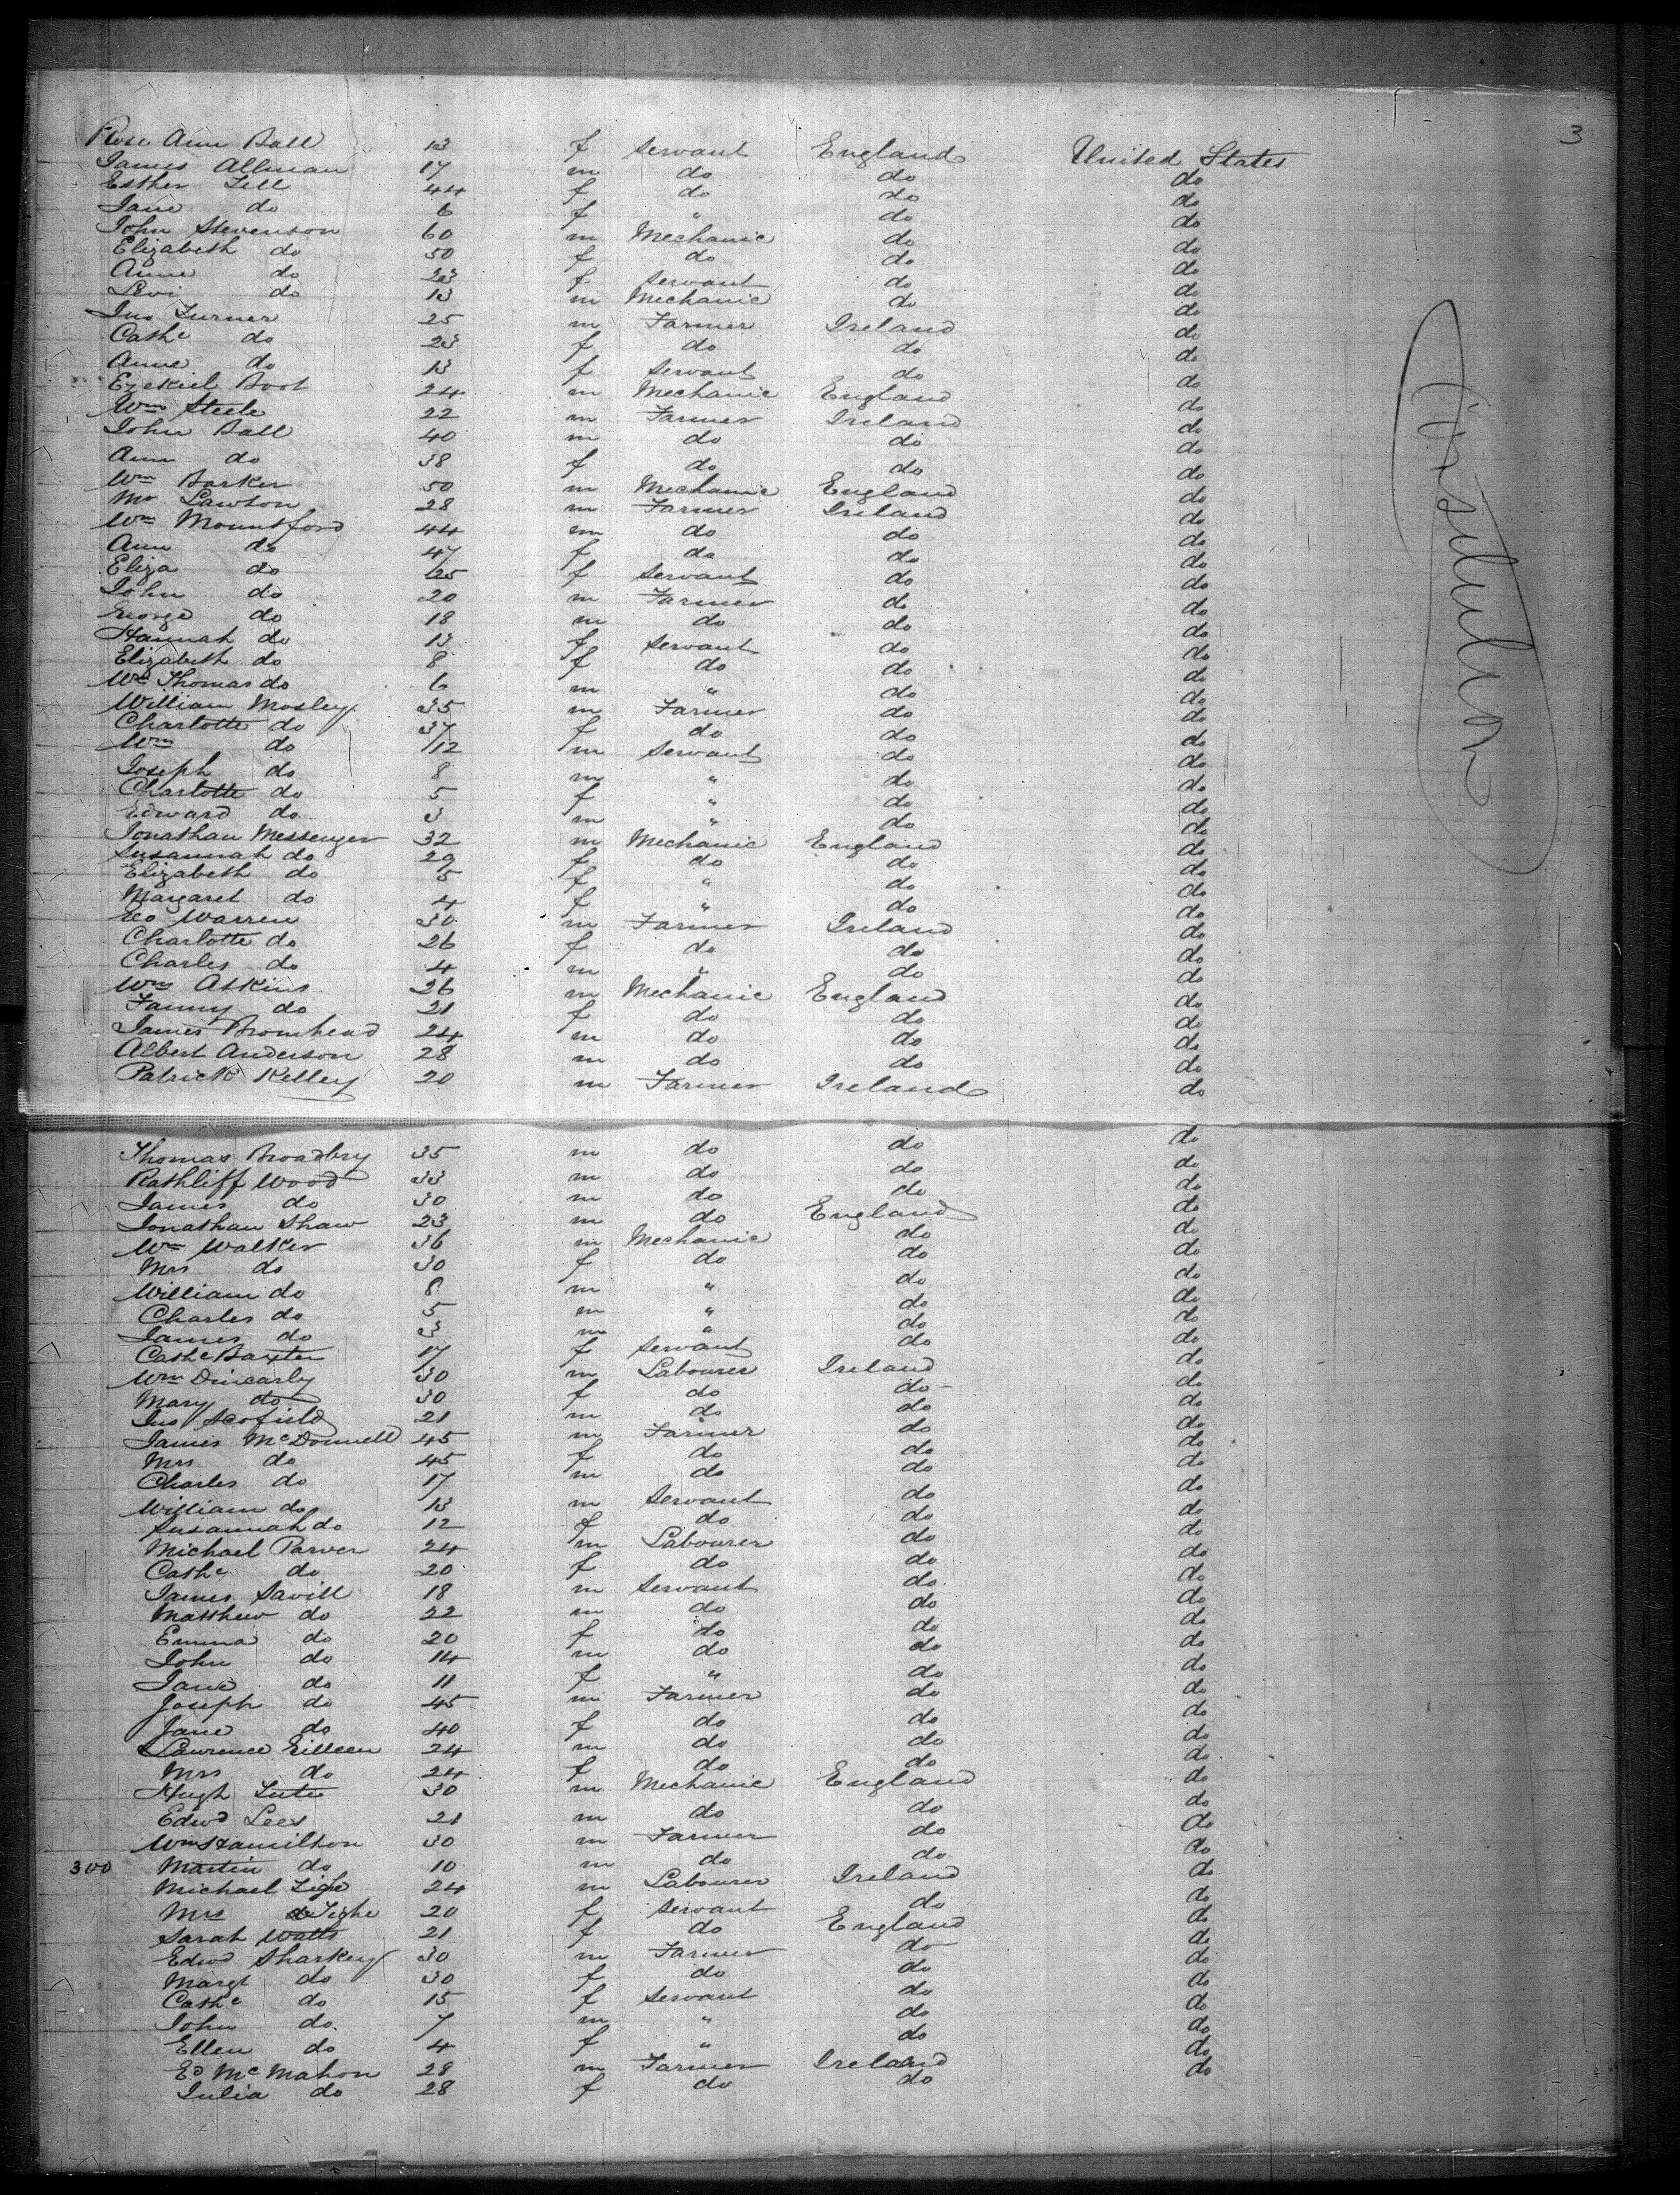 3
Rose Ann Ball 13 f Servant England United States
James Allman 17 m do do do
Esther Tell 44 f do do do
Jane do 6 f " do do
John Stevenson 60 m Mechanic do do
Elizabeth do 50 f do do do
Anne do 23 f Servant do do
Levi do 13 m Mechanic do do
Jno Turner 25 m Farmer Ireland do
Cathe do 23 f do do do
Anne do 13 f Servant do do
Ezekiel Boot 24 m Mechanic England do
Wm Steele 22 m Farmer Ireland do
John Ball 40 m do do do
Ann do 38 f do do do
Wm Barker 50 m Mechanic England do
Mr Lawton 28 m Farmer Ireland do
Wm Mountford 44 m do do do
Ann do 47 f do do do
Eliza do 25 f Servant do do
John do 20 m Farmer do do
George do 18 m do do do
Hannah do 13 f Servant do do
Elizabeth do 8 f do do do
Wm Thomas do 6 m " do do
William Mosley 35 m Farmer do do
Charlotte do 37 f do do do
Wm do 12 m Servant do do
Joseph do 8 m " do do
Charlotte do 5 f " do do
Edward do 3 m " do do
Jonathan Messenger 32 m Mechanic England do
Susannah do 29 f do do do
Elizabeth do 5 f " do do
Margaret do 4 f " do do
Geo Warren 30 m Farmer Ireland do
Charlotte do 26 f do do do
Charles do 4 m " do do
Wm Atkins 26 m Mechanic England do
Fanny do 21 f do do do
James Bromhead 24 m do do do
Albert Anderson 28 m do do do
Patrick Kelley 20 m Farmer Ireland do
Thomas Broadbry 35 m do do do
Rathliff Wood 33 m do do do
James do 30 m do do do
Jonathan Shaw 23 m do England do
Wm Walker 36 m Mechanic do do
Mrs do 30 f do do do
William do 8 m " do do
Charles do 5 m " do do
James do 3 m " do do
Cathe Baxter 17 f Servant do do
Wm 30 m Labourer Ireland do
Mary do 30 f do do do
Jno Scofield 21 m do do do
James McDonnell 45 m Farmer do do
Mrs do 45 f do do do
Charles do 17 m do do do
William do 13 m Servant do do
Susannah do 12 f do do do
Michael Parver 24 m Labourer do do
Cathe do 20 f do do do
James Savill 18 m Servant do do
Matthew do 22 m do do do
Emma do 20 f do do do
John do 14 m do do do
Jane do 11 f " do do
Joseph do 45 m Farmer do do
Jane do 40 f do do do
Lawrence Gilleen 24 m do do do
Mrs do 24 f do do do
Hugh 30 m Mechanic England do
Edwd Lees 21 m do do do
Wm Hamilton 30 m Farmer do do
300 Martin do 10 m do do do
Michael Tige 24 m Labourer Ireland do
Mrs Tighe 20 f Servant do do
Sarah Watts 21 f do England do
Edwd Sharkey 30 m Farmer do do
Margt do 30 f do do do
Cathe do 15 f Servant do do
John do 7 m " do do
Ellen do 4 f " do do
Ed McMahon 28 m Farmer Ireland do
Julia do 28 f do do